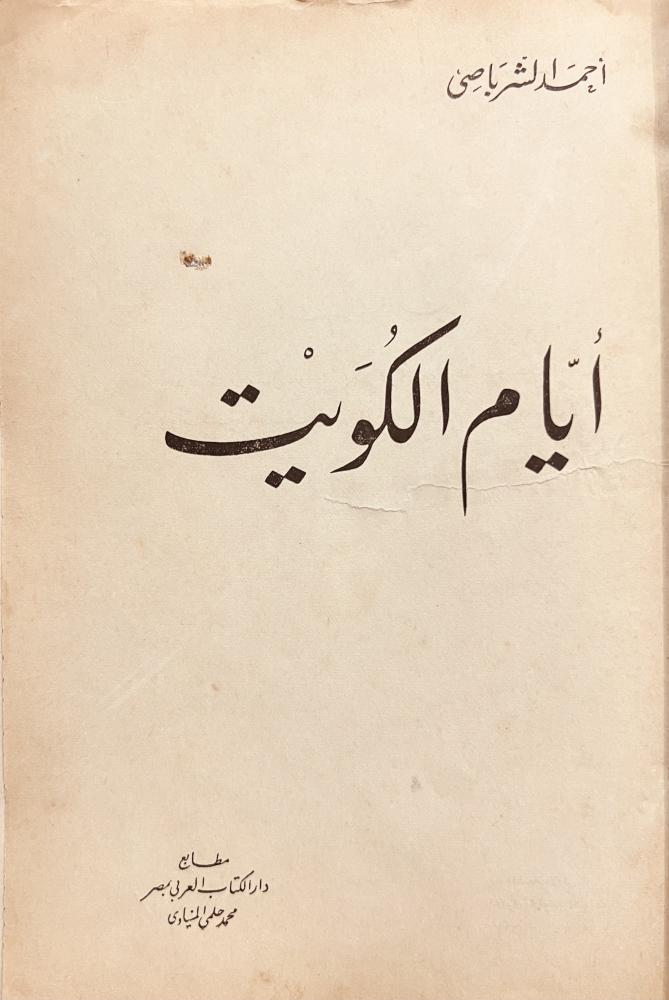 أحمد الشرباصي
أيّام الكُوَيْت
مطابع
دار الكتاب العربي بمصر
محمد حلمي المنياوي